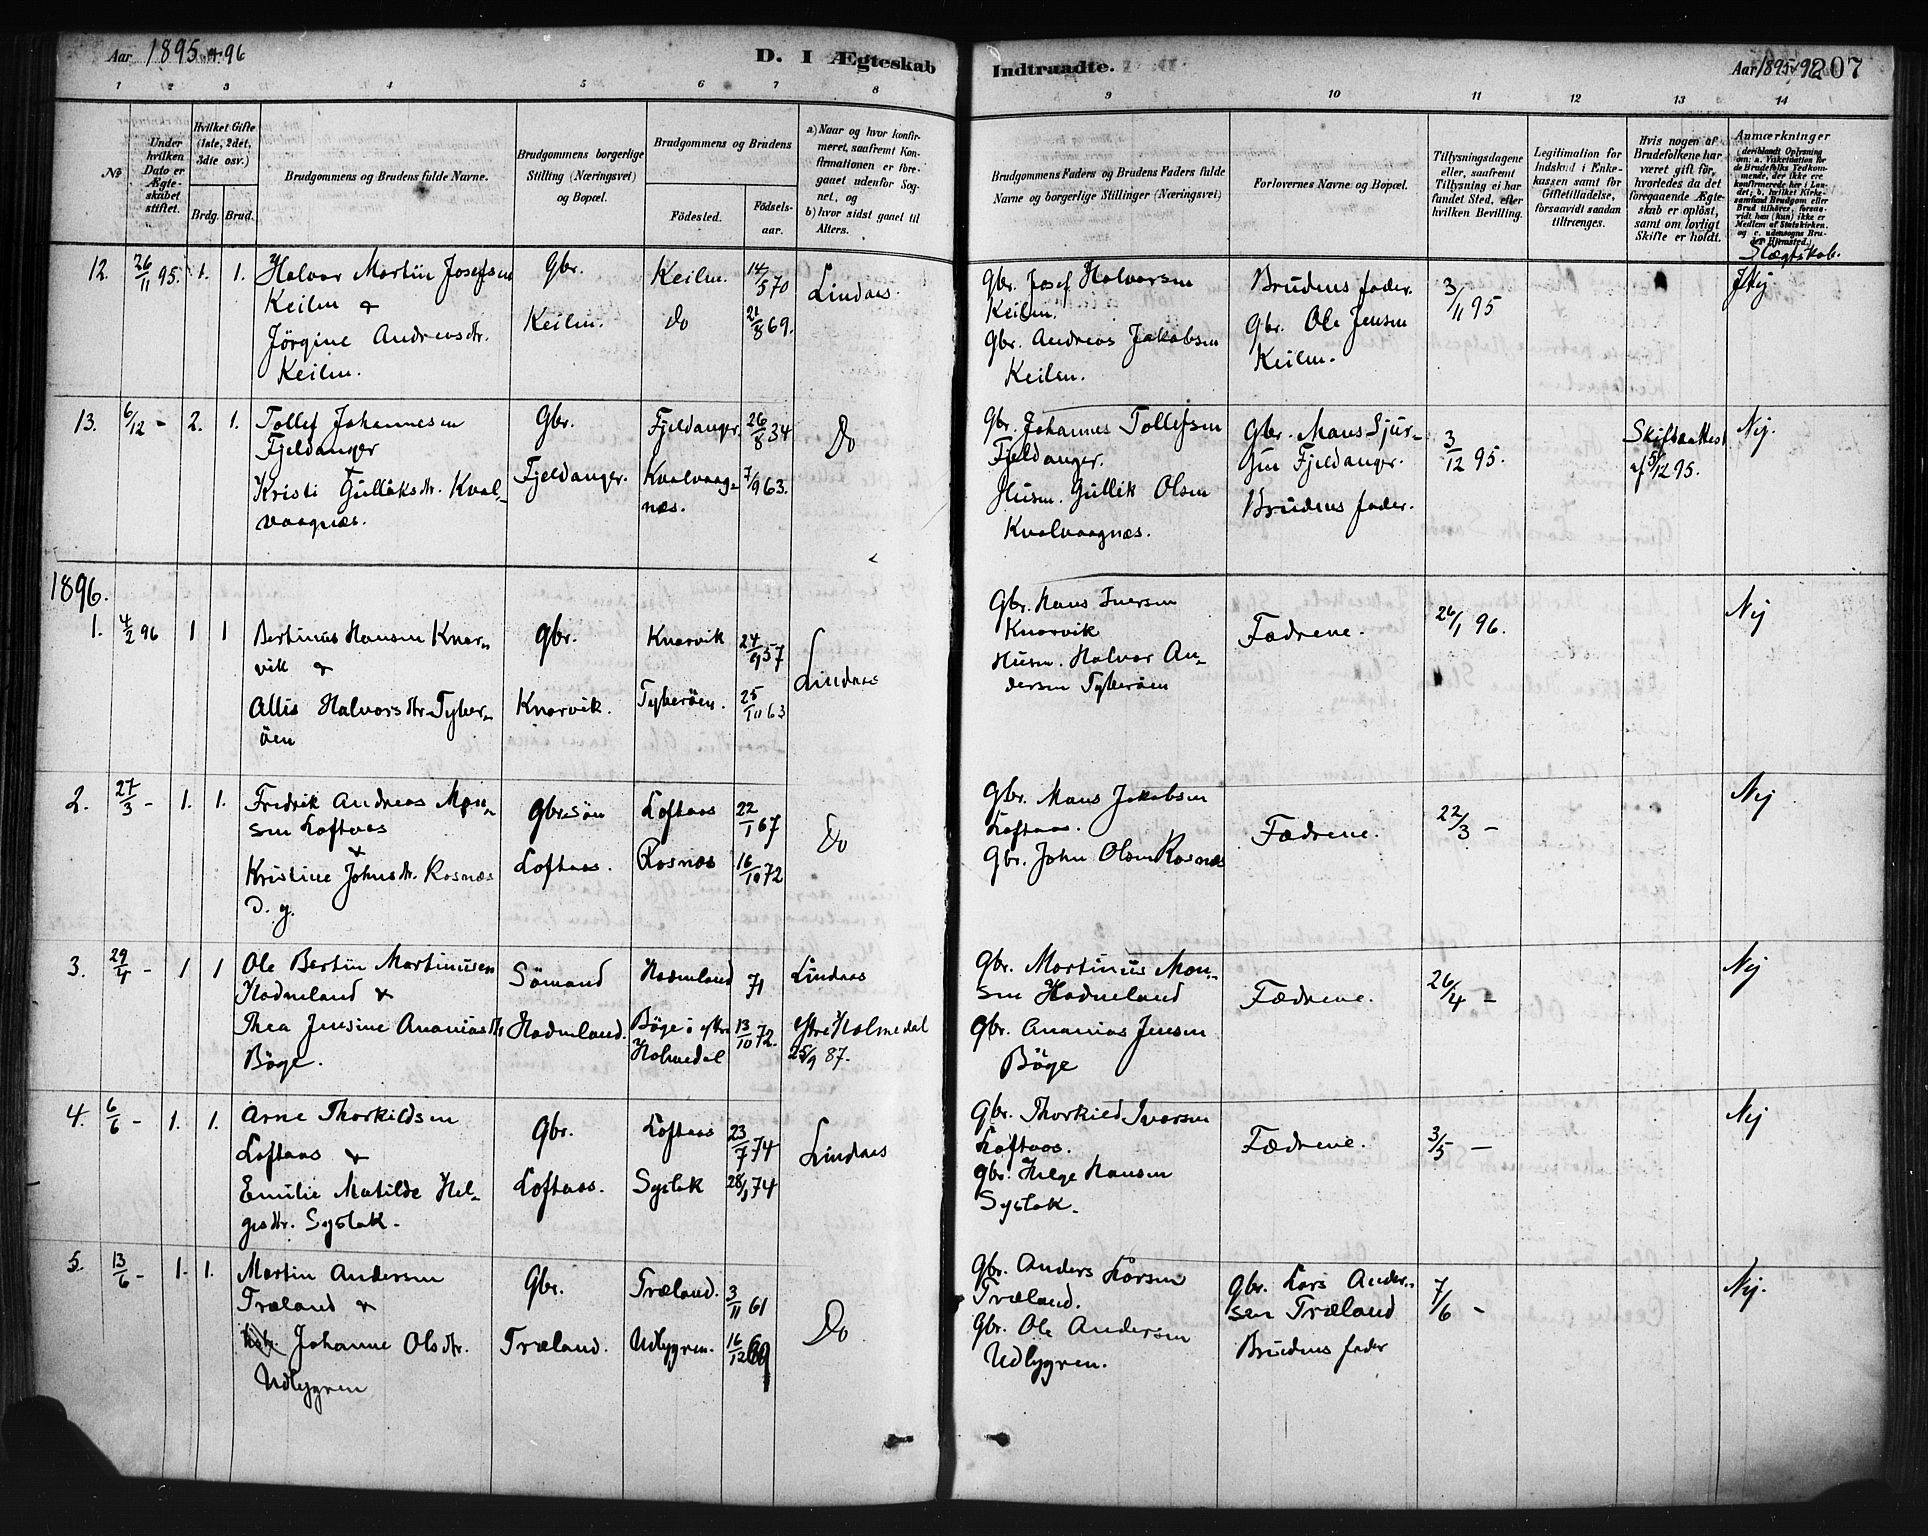 Aar 1895 96
D. I Ægteskab Indtraadte.
Aar 1895
207
1 2 3 4 5 6 7 8 9 10 11 12 13 14
No
Under hvilken Dato er Ægteskabet stiftet.
Hvilket Gifte (1ste, 2det, 3die osv.)
Brdg. Brud.
Brudgommens og Brudens fulde Navne.
Brudgommens borgerlige Stilling (Næringsvei) og Bopæl.
Brudgommens og Brudens
Fødested.
Fødselsaar.
a) Naar og hvor konfirmeret, saafremt Konfirmationen er foregaaet udenfor Sognet, og
b) hvor sidst gaaet til Alters.
Brudgommens Faders og Brudens Faders fulde Navne og borgerlige Stillinger (Næringsvei)
Forlovernes Navne og Bopæl.
Tillysningsdagene eller, saafremt Tillysning ei har fundet Sted, efter hvilken Bevilling.
Legitimation for Indskud i Enkekassen samt for Giftetilladelse, forsaavidt saadan tiltrænges.
Hvis nogen af Brudefolkene har været gift før, hvorledes da det foregaaende Ægteskab er opløst, samt om lovligt Skifte er holdt.
Anmærkninger
Slægtskab.
12. 26/11 95. 1. 1. Halvor Martin Josefsen
Keilen &
Jørgine Andreasdtr.
Keilen.
Gbr.
Keilen.
Keilen. 14/5 70
Do 21/8 69.
Lindaas.
Gbr. Josef Halvorsen
Keilen.
Gbr. Andreas Jakobsen
Keilen.
Brudens fader.
Gbr. Ole Jensen
Keilen.
3/11 95
Nej
13. 6/12 - 2. 1. Tollef Johannesen
Fjeldanger
&
Kristi Gulliksdtr. Kval-
vaagnæs.
Gbr.
Fjeldanger.
Fjeldanger. 26/8 34
Kvalvaag- 7/9 63.
næs.
Do
Gbr. Johannes Tollefsen
Fjeldanger.
Husm. Gullik Olsen
Kvalvaagnæs.
Gbr. Mans Sjur-
sen Fjeldanger.
Brudens fader.
3/12 95.
Skifteattest
af 5/12 95.
Nej.
1896.
1. 4/2 96 1 1 Bertinus Hansen Knar-
vik &
Allis Halvorsdtr. Tyber-
öen
Gbr.
Knarvik.
Knarvik 24/9 57
Tyberöen. 25/10 63
Lindaas
Gbr. Hans Iversen
Knarvik
Husm. Halvor An-
dersen Tyberöen
Fædrene.
26/1 96.
Nej
2. 27/3 - 1. 1. Fredrik Andreas Mon-
sen Loftaas
&
Kristine Johnsdtr. Rosnæs
D. y.
Gbr.sön
Loftaas.
Loftaas 22/1 67
Rosnæs 16/10 72
Do
Gbr. Mans Jakobsen
Loftaas.
Gbr. John Olsen Rosnæs
Fædrene.
22/3 -
Nej
3. 29/4 - 1 1 Ole Bertin Martinusen
Hodneland &
Thea Jensine Ananiasdtr
Böge.
Sömand
Hodneland.
Hodneland 71
Böge i ytre 13/10 72.
Holmedal
Lindaas
ytre Holmedal
25/9 87.
Gbr. Martinus Mon-
sen Hodneland
Gbr. Ananias Jensen
Böge
Fædrene.
26/4 -
Nej
4. 6/6 - 1. 1. Arne Thorkildsen
Loftaas &
Emilie Matilde Hel-
gesdtr. Syslak.
Gbr.
Loftaas.
Loftaas 23/7 74
Syslak 28/1 74
Lindaas
Gbr. Thorkied Iversen
Loftaas.
Gbr. Helge Hansen
Syslak.
Fædrene.
3/5 -
Nej
5. 13/6 - 1. 1. Martin Andersen
Træland &
Johanne Olsdtr.
Udlygren
Gbr.
Træland.
Træland. 3/11 61
Udlygren. 16/12 69
Do
Gbr. Anders Larsen
Træland.
Gbr. Ole Andersen
Udlygren.
Gbr. Lars Ander-
sen Træland
Brudens fader
7/6 -
Nej.